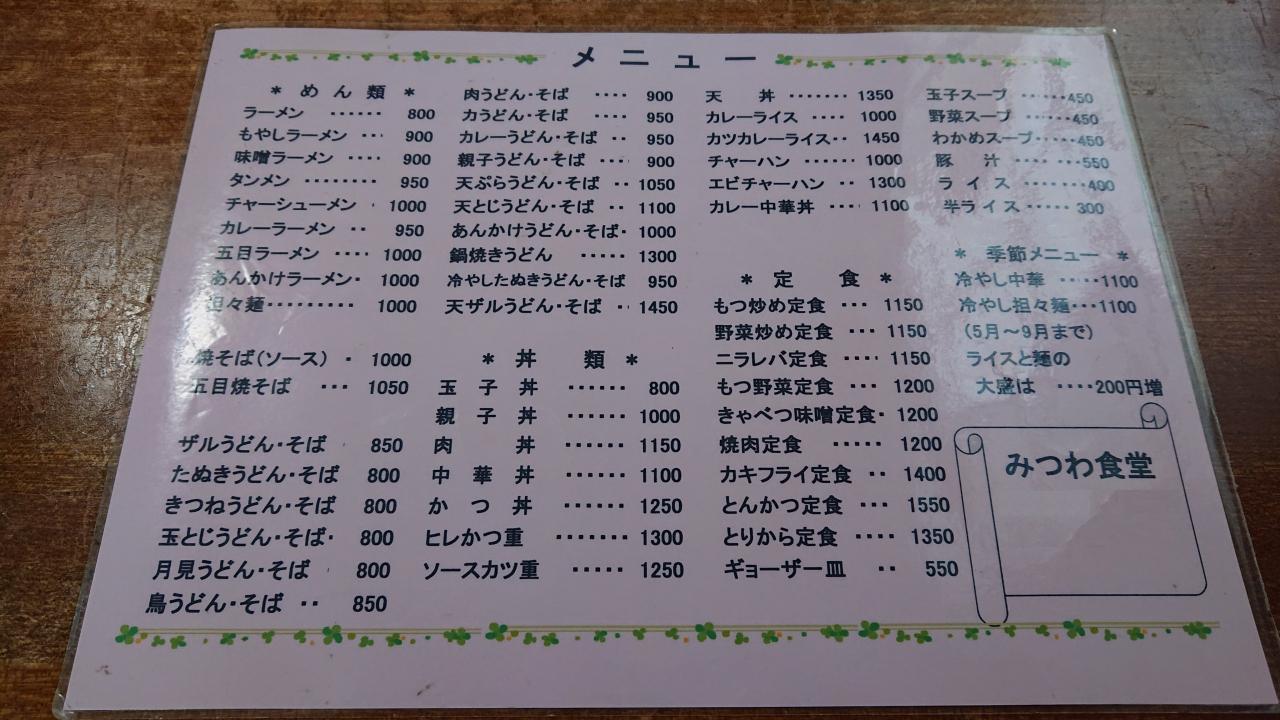 メニュー
＊ めん類 ＊
ラーメン ‥‥‥ 800
もやしラーメン ‥‥ 900
味噌ラーメン ‥‥ 900
タンメン ‥‥‥‥ 950
チャーシューメン ・ 1000
カレーラーメン ‥ 950
五目ラーメン ‥‥ 1000
あんかけラーメン・ 1000
担々麺‥‥‥‥‥ 1000
焼そば（ソース） ・ 1000
五目焼そば ‥・ 1050
ザルうどん・そば 850
たぬきうどん・そば 800
きつねうどん・そば 800
玉とじうどん・そば・ 800
月見うどん・そば 800
鳥うどん・そば ‥ 850
肉うどん・そば ‥‥ 900
力うどん・そば ‥‥ 950
カレーうどん・そば ‥ 950
親子うどん・そば ‥‥ 900
天ぷらうどん・そば ‥ 1050
天とじうどん・そば ‥ 1100
あんかけうどん・そば・ 1000
鍋焼きうどん ‥‥・ 1300
冷やしたぬきうどん・そば 950
天ザルうどん・そば ‥ 1450
＊ 丼 類 ＊
玉子丼 ‥‥‥ 800
親子丼 ‥‥‥ 1000
肉丼 ‥‥‥ 1150
中華丼 ‥‥‥ 1100
かつ丼 ‥‥‥ 1250
ヒレかつ重 ‥‥‥・ 1300
ソースカツ重 ‥‥・ 1250
天丼 ‥‥‥・ 1350
カレーライス ‥‥ 1000
カツカレーライス‥ 1450
チャーハン ‥‥‥ 1000
エビチャーハン ‥ 1300
カレー中華丼 ‥‥ 1100
＊ 定 食 ＊
もつ炒め定食 ‥・ 1150
野菜炒め定食 ‥・ 1150
ニラレバ定食 ‥‥ 1150
もつ野菜定食 ‥・ 1200
きゃべつ味噌定食・ 1200
焼肉定食 ‥‥・ 1200
カキフライ定食 ‥ 1400
とんかつ定食 ‥・ 1550
とりから定食 ‥‥ 1350
ギョーザー皿 ‥ 550
玉子スープ ‥‥‥450
野菜スープ ‥‥‥450
わかめスープ‥‥・450
豚汁 ‥‥ ‥・550
ライス ‥‥‥・400
半ライス ‥‥・ 300
＊ 季節メニュー ＊
冷やし中華 ‥‥・1100
冷やし担々麺‥・1100
（5月～9月まで）
ライスと麺の
大盛は ‥‥200円増
みつわ食堂